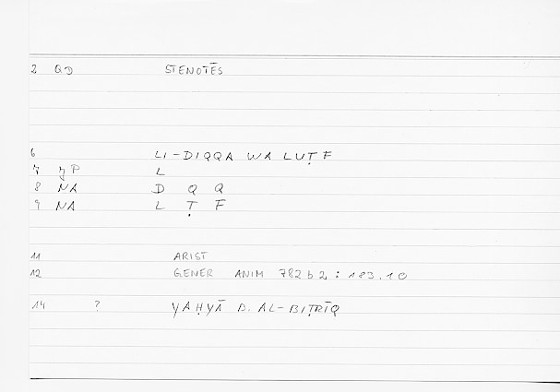 2 QD STENOTĒS
6 LI-DIQQA WA LUṬF
7 yP L
8 NA D Q Q
9 NA L Ṭ F
11 ARIST
12 GENER ANIM 782 b 2 : 183.10
14 ? YAḤYĀ B. AL-BIṬRĪQ